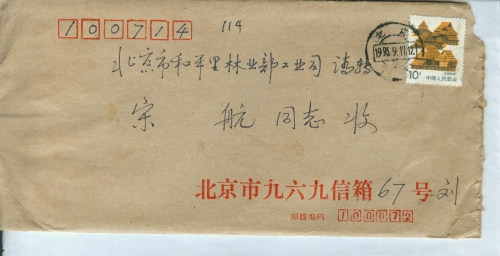 100714 114
北京市和平里林业部工业司 请转
宋 航 同志 收
北京市九六九信箱 67 号 刘
邮政编码 100872
北京
10分
中国人民邮政